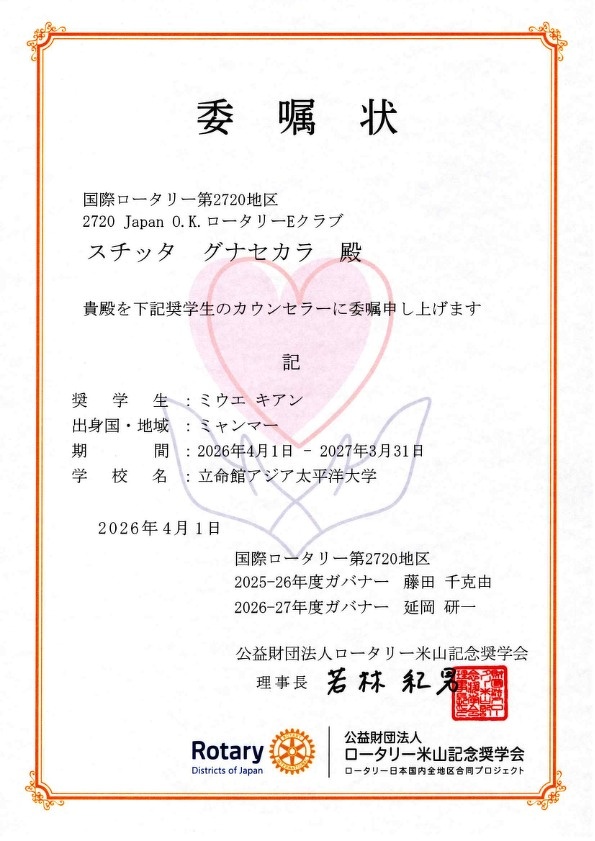 委嘱状
国際ロータリー第2720地区
2720 Japan O.K.ロータリーEクラブ
スチッタ グナセカラ 殿
貴殿を下記奨学生のカウンセラーに委嘱申し上げます
記
奨学生：ミウエ キアン
出身国・地域：ミャンマー
期間：2026年4月1日 - 2027年3月31日
学校名：立命館アジア太平洋大学
2026年4月1日
国際ロータリー第2720地区
2025-26年度ガバナー 藤田 千克由
2026-27年度ガバナー 延岡 研一
公益財団法人ロータリー米山記念奨学会
理事長 若林 紀男
Rotary
Districts of Japan
公益財団法人
ロータリー米山記念奨学会
ロータリー日本国内全地区合同プロジェクト